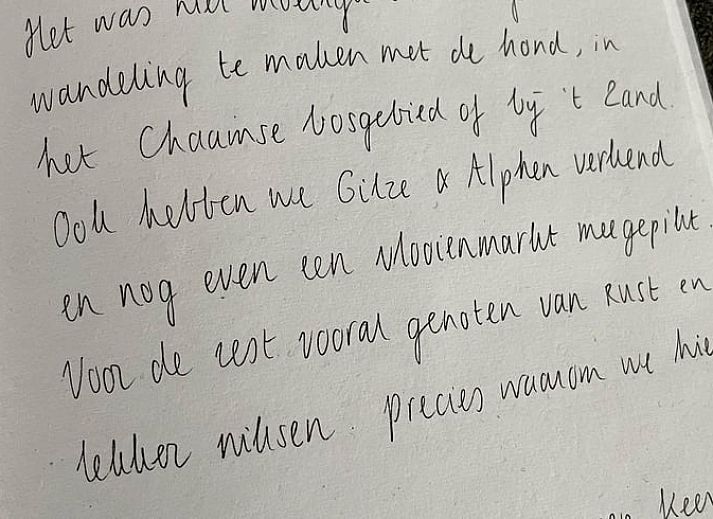 Het was niet
wandeling te maken met de hond, in
het Chaamse bosgebied of bij 't Zand.
Ook hebben we Gilze & Alphen verkend
en nog even een vlooienmarkt meegepikt.
Voor de rest vooral genoten van rust en
lekker niksen. precies waarom we hie
keer